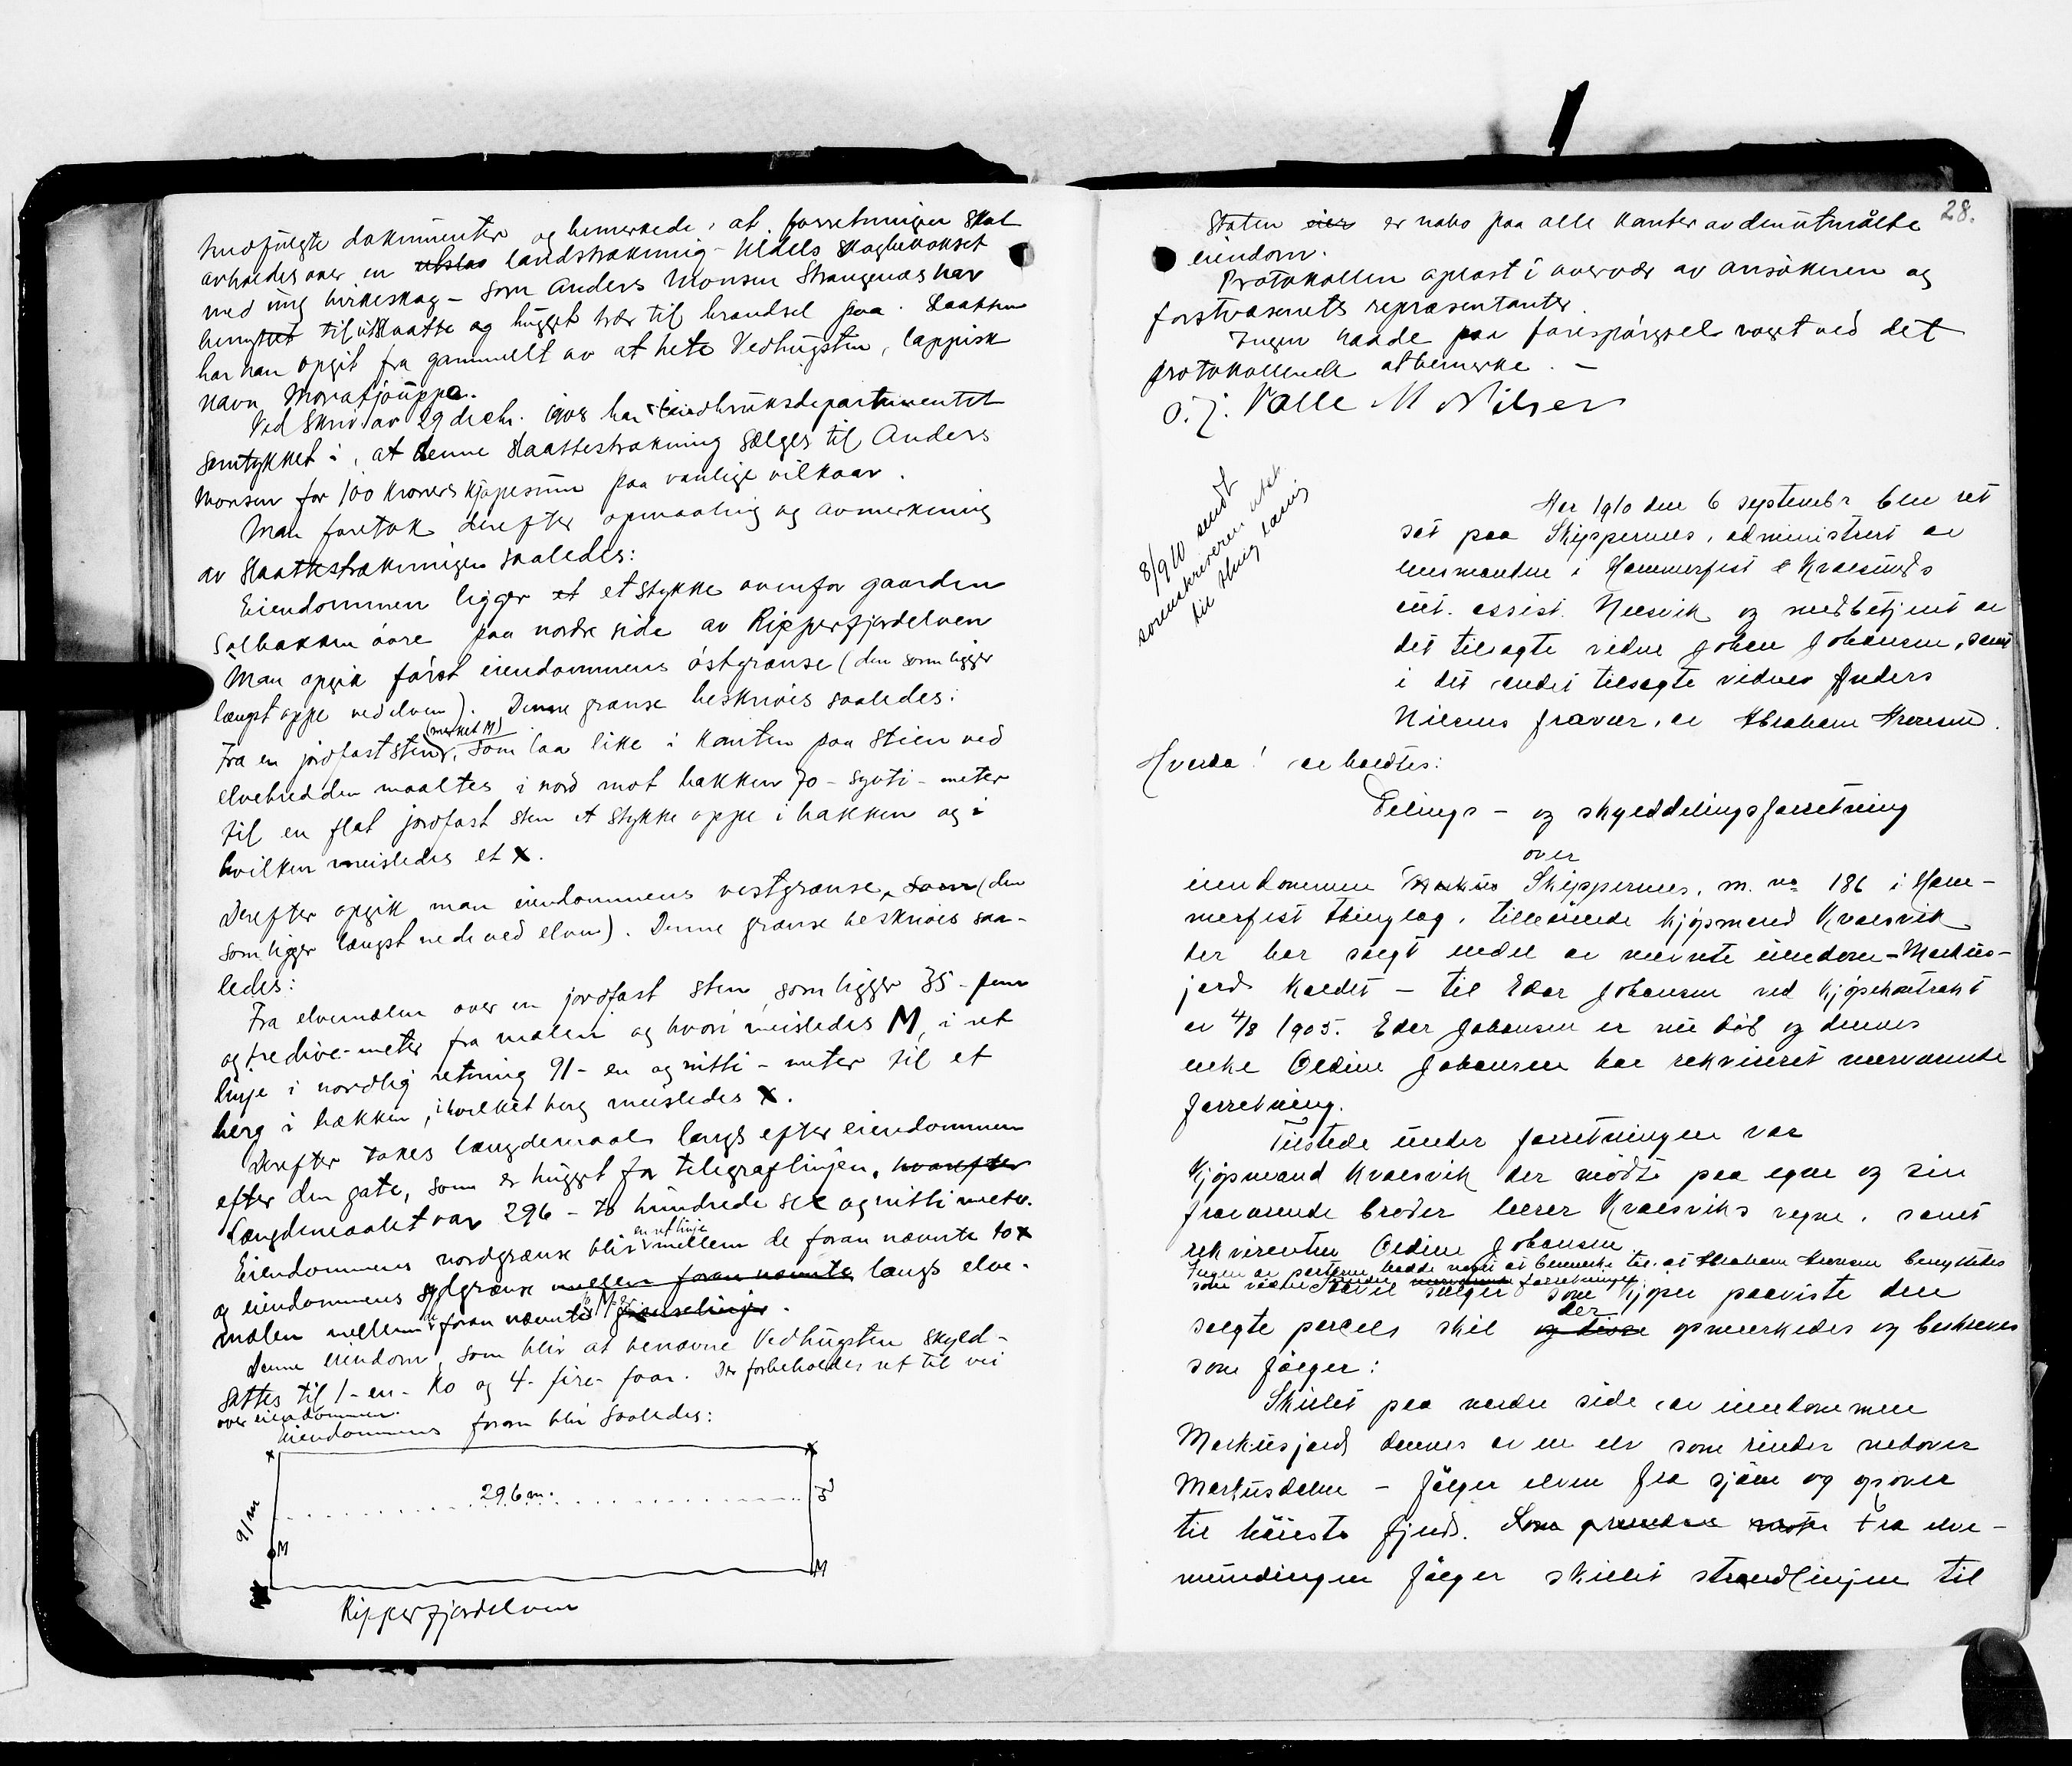 medfulgte dokumenter og bemerkede, at forretningen skal
avholdes over en utslaa landstrækning - tildels skogbevokset
med ung birkeskog - som Anders Monsen Strangenæs har
benyttet til utslaatte og hugget træ til brændsel paa. Slaatten
har han opgit fra gammelt av at hete Vedhugsten, lappisk
navn
Ved skriv. av 29 decbr. 1908 har Landbruksdepartementet
samtykket i, at denne slaattestrækning sælges til Anders
Monsen for 100 kroners kjøpesum paa vanlige vilkaar.
Man foretok derefter opmaaling og avmerkning
av slaattestrækningen saaledes:
Eiendommen ligger et et stykke ovenfor gaarden
Solbakken øvre paa nordre side av Ripperfjordelven
Man opgik først eiendommens østgrænse (den som ligger
længst oppe ved elven). Denne grænse beskrives saaledes:
(merket M)
Fra en jordfast sten, som laa like i kanten paa stien ved
elvebredden maaltes i nord mot bakken 70 - sytti - meter
til en flat jordfast sten et stykke oppe i bakken og i
hvilken meisledes et x.
Derefter opgik man eiendommens vestgrænse, som (den
som ligger længst nede ved elven). Denne grænse beskrives saa-
ledes:
Fra elvemælen over en jordfast sten, som ligger 35 - fem
og tredive - meter fra mælen og hvori meisledes M, i ret
linje i nordlig retning 91 - en og nitti - meter til et
berg i bakken, i hvilket berg meisledes x.
Derefter tokes længdemaal langs efter eiendommen
efter den gate, som er hugget for telegraflinjen, hvorefter
Længdemaalet var 296 - to hundrede sex og nitti meter.
en ret linje
Eiendommens nordgrænse blir mellem de foran nævnte to x
og eiendommens sydgrænse mellem foran nævnte langs elve-
mælen mellem de foran nævnte to M-er grænselinjer.
Denne eiendom, som blir at benævne Vedhugsten skyld-
sættes til 1 - en - ko og 4 - fire - faar. Der forbeholdes ret til vei
over eiendommen.
Eiendommens form blir saaledes:
x x
296 m.
91 m
M
M
Ripperfjordelven
28.
Staten eier er nabo paa alle kanter av den utmålte
eiendom.
Protokollen oplæst i overvær av ansøkeren og
forstvæsenets repræsentanter.
Ingen hadde paa forespørgsel noget ved det
protokollerede at bemerke. -
O. J. Valle M Nilsen
8/9 10 sendt
sorenskriveren utskr.
til tinglæsning
Aar 1910 den 6 septembr blev ret
sat paa Skippernes, administrert av
lensmanden i Hammerfest & Kvalsunds
aut. assist. Næsvik og medbetjent av
det tilsagte vidne Johan Johansen, samt
i det andet tilsagte vidnes Anders
Nilsens fravær, av Abraham
Hvorda! avholdtes:
Delings - og skylddelingsforretning
over
eiendommen Markus Skippernes, m. no 186 i Ham-
merfest thinglag, tilhørende kjøpmand Kvalsvik
der har solgt endel av nævnte eiendom - Markus-
jord kaldet - til Edar Johansen ved kjøpekontrakt
av 4/8 1905. Edar Johansen er nu død og dennes
enke Oldine Johansen har rekvireret nærværende
forretning.
Tilstede under forretningen var
Kjøpmand Kvalsvik der mødte paa egne og sin
fraværende broder lærer Kvalsviks vegne, samt
rekvirenten Oldine Johansen.
Ingen av parterne hadde noget at bemerke til, at Abraham benyttedes
som vidne under nærværende forretningen.
Saavel sælger som kjøper paaviste den
der
solgte parcels skil og disse opmerkedes og beskreves
som følger:
Skillet paa nordre side av eiendommen
Markusjord dannes av en elv som rinder nedover
Markusdalen - følger elven fra sjøen og opover
til høieste fjeld. Fra elve-
mundingen følger skillet strandlinjen til